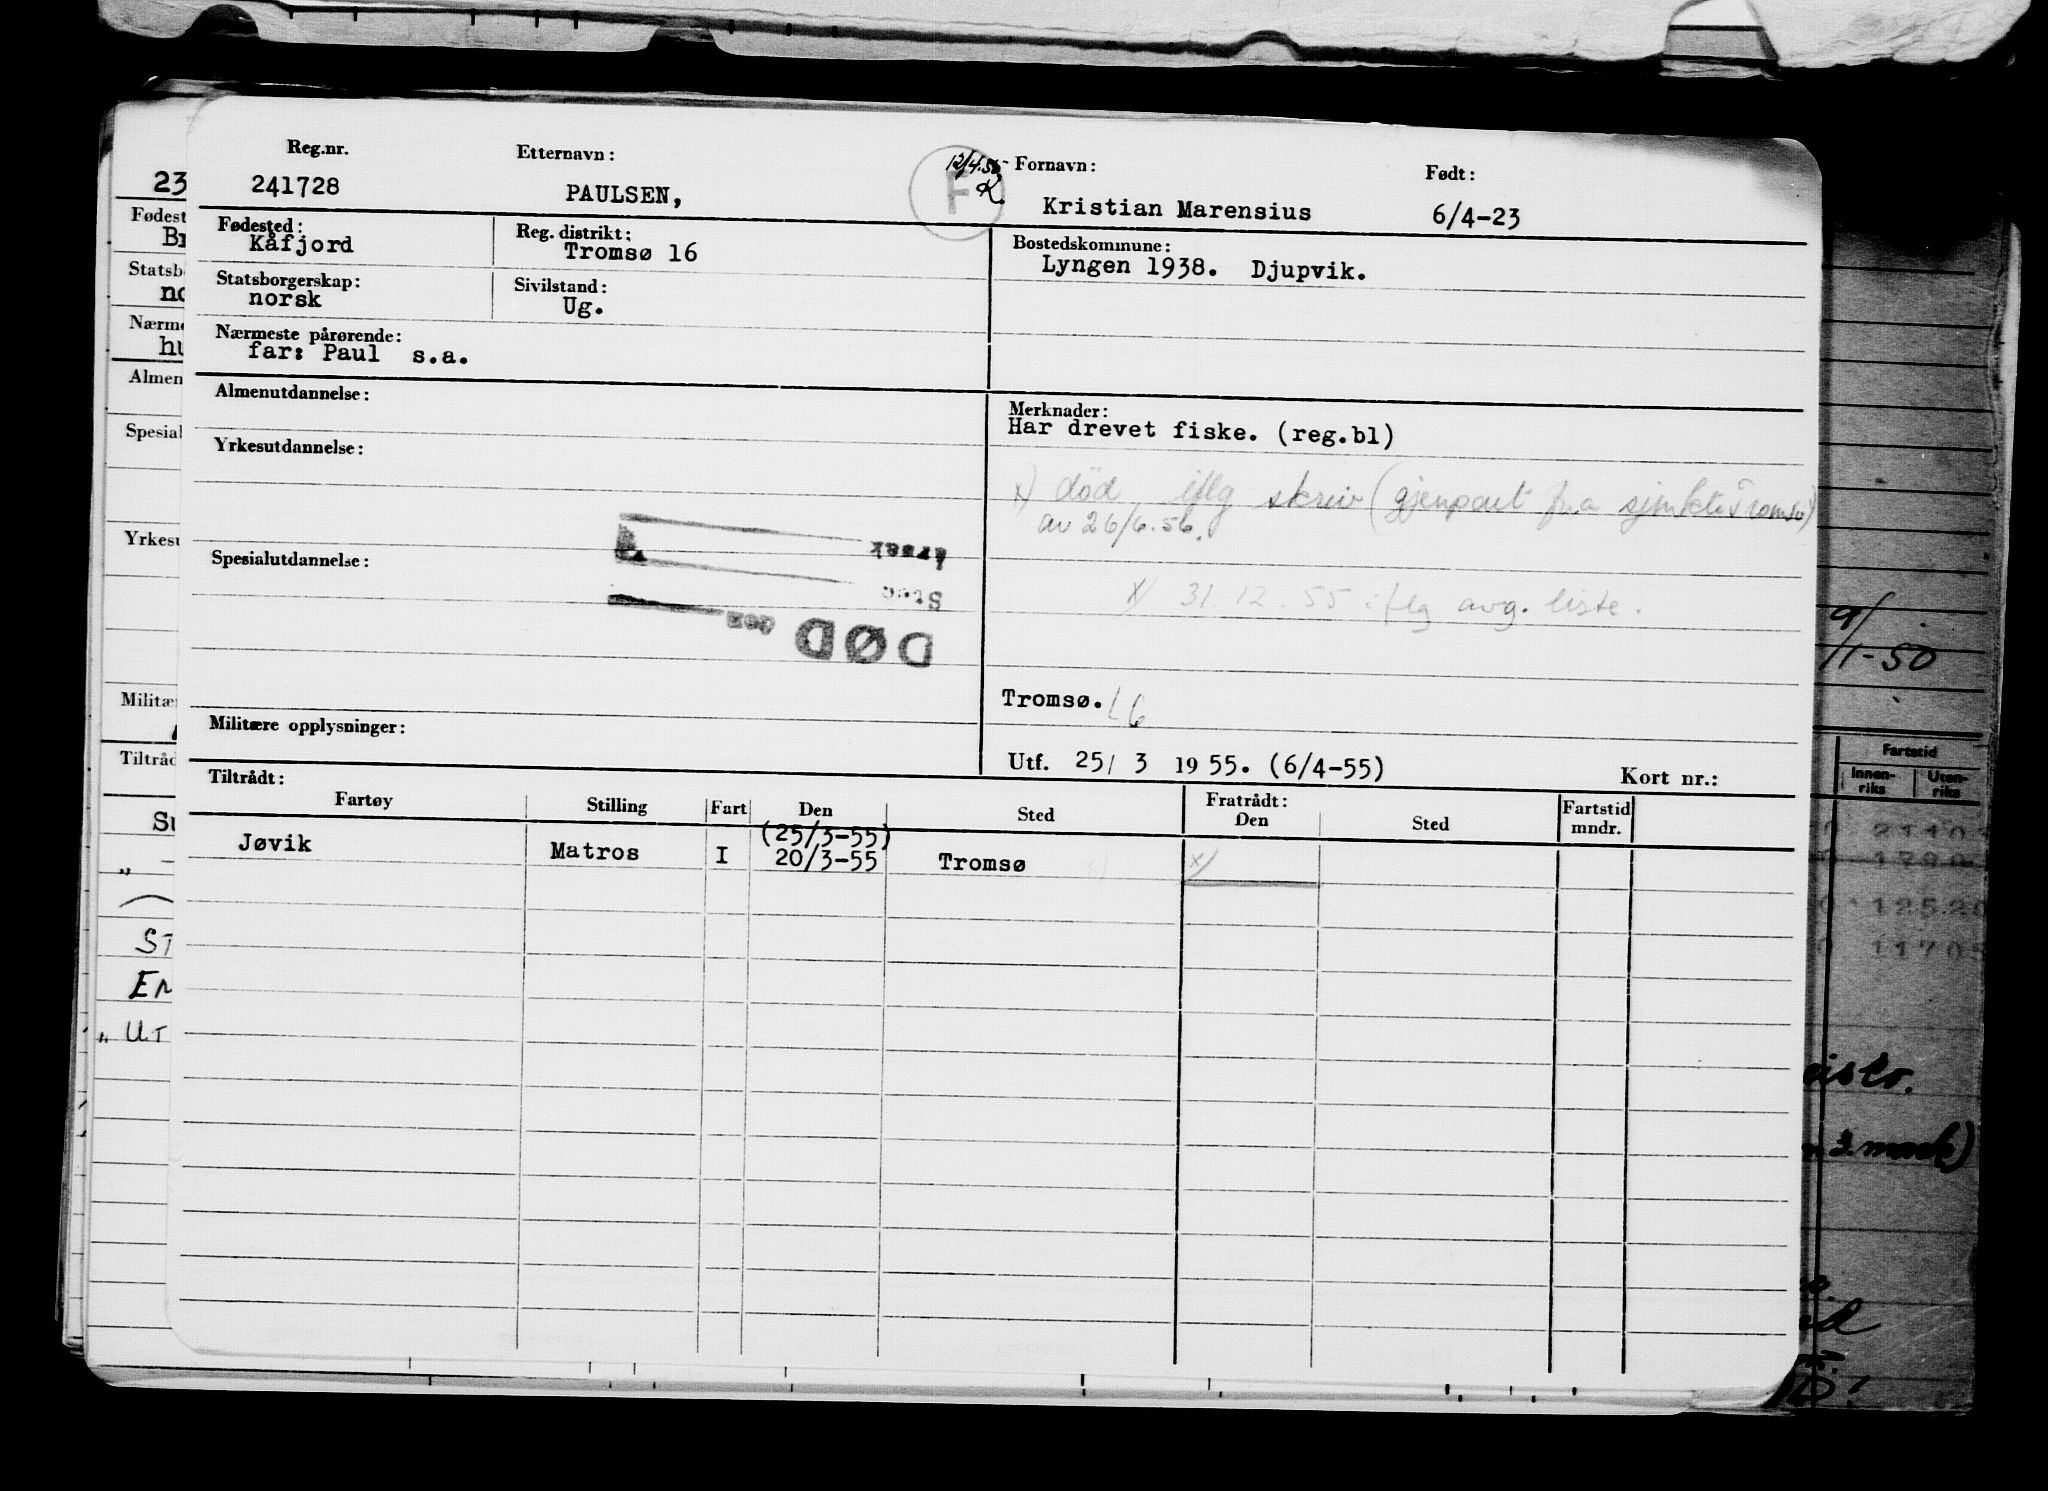 Reg.nr. Etternavn: 12/4.56 K. Fornavn: Født:
241728 PAULSEN, F Kristian Marensius 6/4-23
Fødested: Reg. distrikt: Bostedskommune:
Kåfjord Tromsø 16 Lyngen 1938. Djupvik.
Statsborgerskap: Sivilstand:
norsk Ug.
Nærmeste pårørende:
far: Paul s.a.
Almenutdannelse: Merknader:
Har drevet fiske. (reg.bl)
Yrkesutdannelse:
x) död iflg skriv (gjenpart fra sjmktr Tromsø)
av 26/6.56.
Spesialutdannelse:
årsak
Sted
DØD den
x) 31.12.55 iflg avg. liste.
Tromsø. L6
Militære opplysninger:
Utf. 25/ 3 1955. (6/4-55) Kort nr.:
Tiltrådt: Fratrådt:
Fartøy Stilling Fart Den Sted Den Sted Fartstid mndr.
(25/3-55)
Jøvik Matros I 20/3-55 Tromsø x)
23
Fødest
Br
Statsb
no
Nærme
hu
Almen
Spesial
Yrkesu
Militær
Tiltråd
Su
ST
EN
" UT
9/
/1-50
Fartstid
Innen-riks Uten-riks
3 mnd.)